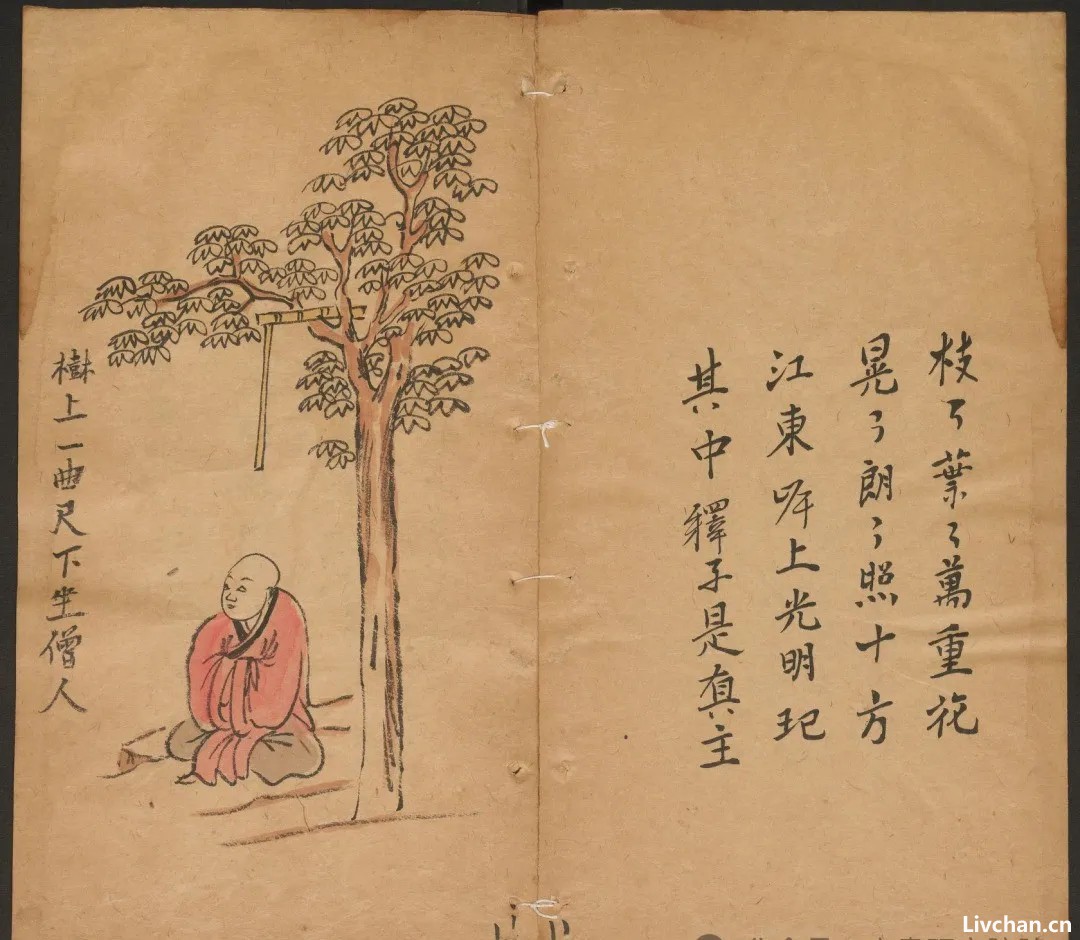 枝々葉々萬重
晃々朗々照十方
江東岸上光明玘
其中釋子是真主
樹上一曲尺下坐僧人
Livchan.cn